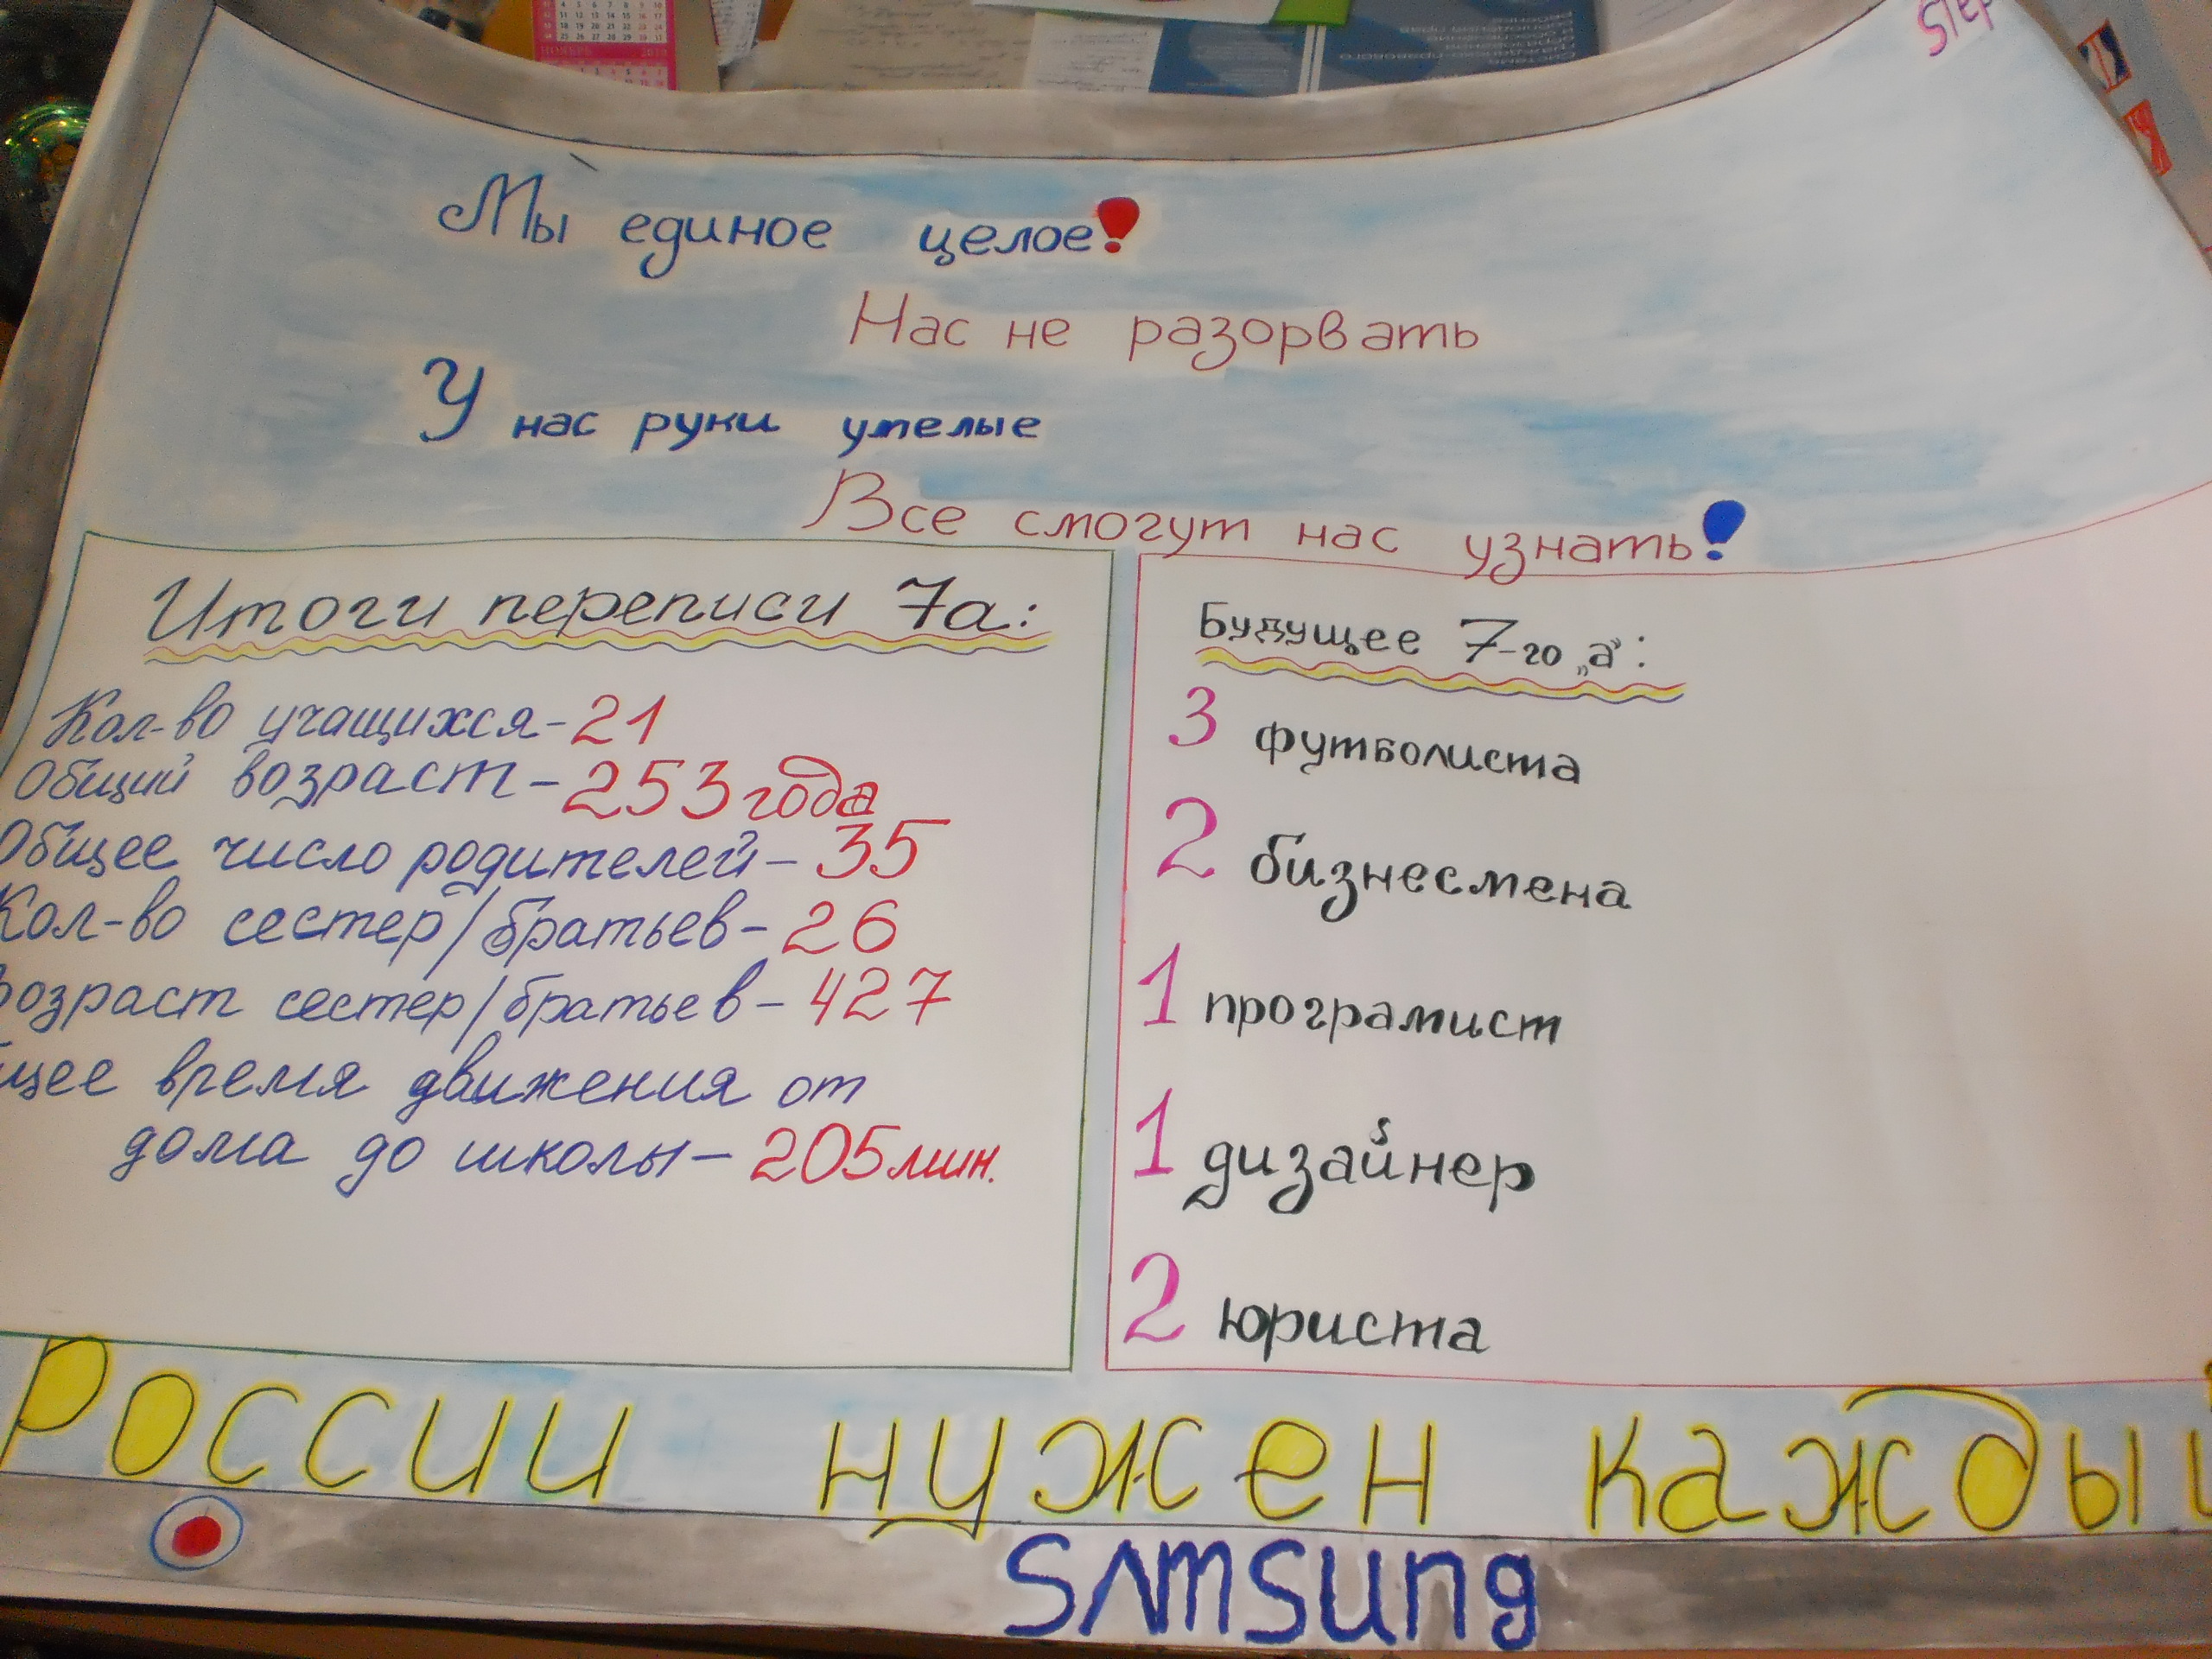 НОЯБРЬ 2013
Step
Мы единое целое!
Нас не разорвать
У нас руки умелые
Все смогут нас узнать!
Итоги переписи 7а:
Кол-во учащихся - 21
Общий возраст - 253 года
Общее число родителей - 35
Кол-во сестер/братьев - 26
возраст сестер/братьев - 427
щее время движения от
дома до школы - 205 мин.
Будущее 7-го „а":
3 футболиста
2 бизнесмена
1 програмист
1 дизайнер
2 юриста
России нужен кажды
SAMSUNG